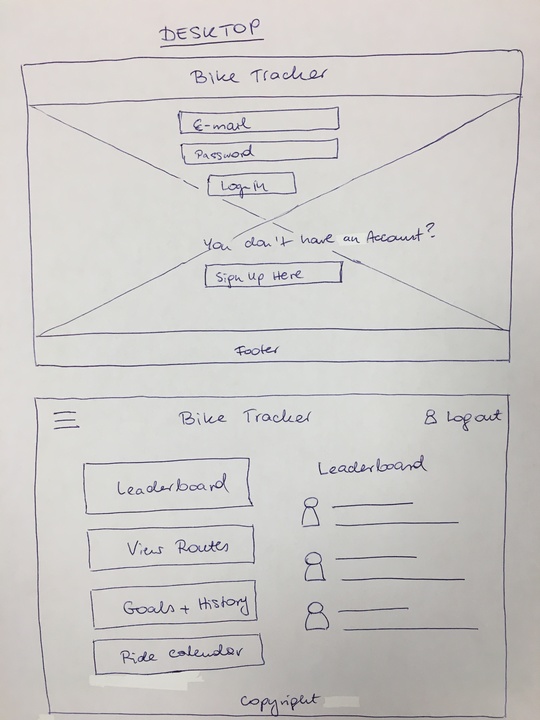 DESKTOP
Bike Tracker
E-mail
Password
Log-in
You don't have an Account?
Sign Up Here
Footer
Bike Tracker
Log out
Leaderboard
Leaderboard
View Routes
Goals + History
Ride calendar
Copyright